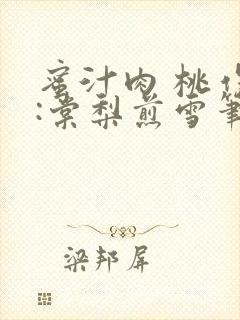 蜜汁肉桃作
:棠梨煎雪筆
梁邦屏